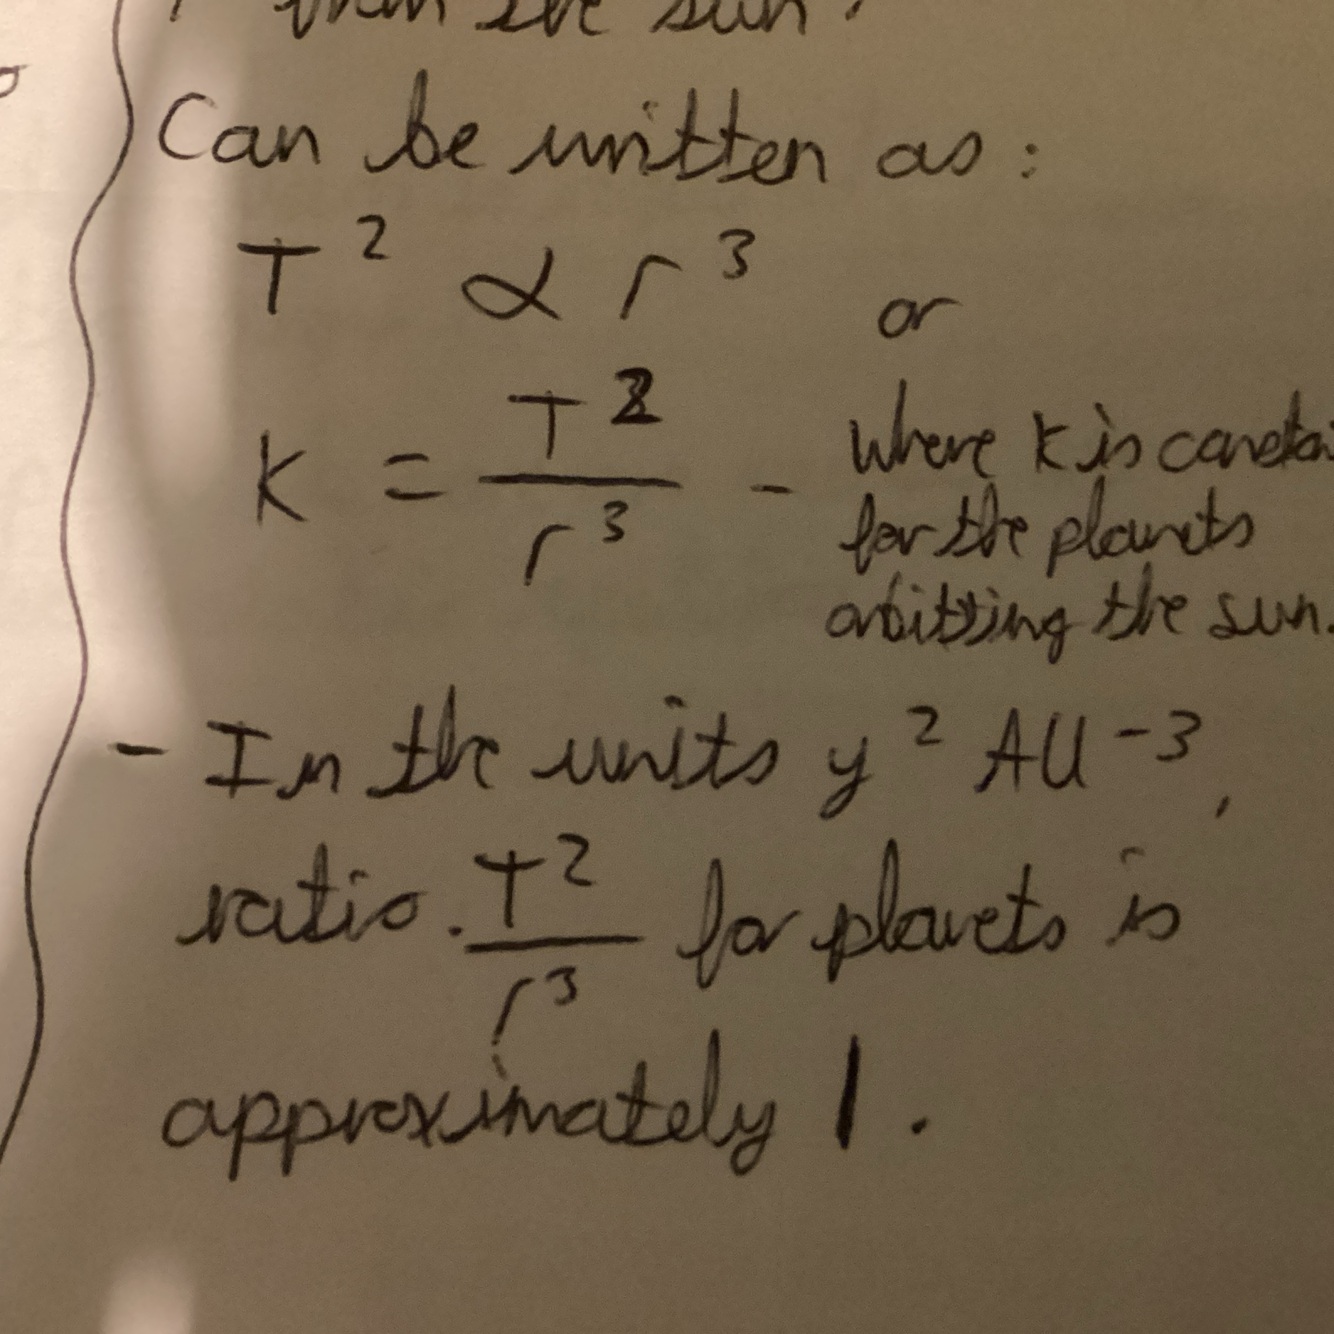 than the sun.
Can be written as:
T² ∝ r³ or
K = T²/r³ - where K is
for the planets
orbitting the sun.
- In the units y² AU⁻³,
ratio. T²/r³ for planets is
approximately 1.